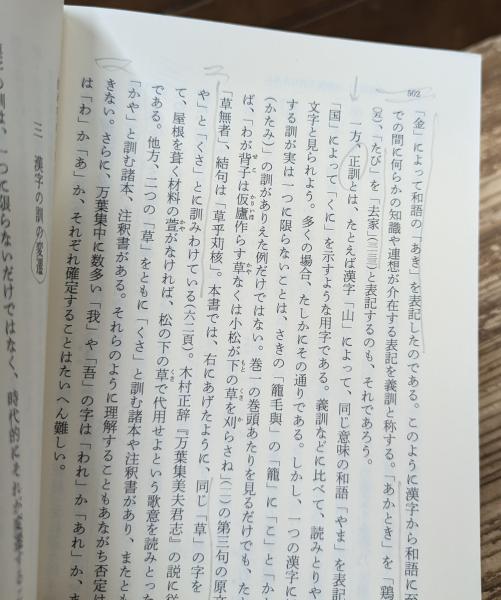 502
「金」によって和語の「あき」を表記したのである。このように漢字から和語に至
での間に何らかの知識や連想が介在する表記を義訓と称する。「あかとき」を「鶏
「たび」を「去家」(二三)と表記するのも、それであろう。
一方、正訓とは、たとえば漢字「山」によって、同じ意味の和語「やま」を表記
「国」によって「くに」を示すような用字である。義訓などに比べて、読みとりや
文字と見られよう。多くの場合、たしかにその通りである。しかし、一つの漢字に
する訓が実は一つに限らないことは、さきの「籠毛與」の「籠」に「こ」と「か
(かたみ)」の訓がありえた例だけではない。巻一の巻頭あたりを見るだけでも、た
ば、「わが背子は仮廬作らす草なくは小松が下の草を刈らさね(一一)の第三句の原文
「草無者」、結句は「草乎苅核」。本書では、右にあげたように、同じ「草」の字を
や」と「くさ」とに訓みわけている(六二頁)。木村正辞『万葉集美夫君志』の説に従
て、屋根を葺く材料の萱がなければ、松の下の草で代用せよという歌意を読みとった
である。他方、二つの「草」をともに「くさ」と訓む諸本や注釈書があり、またとも
「かや」と訓む諸本、注釈書がある。それらのように理解することもあながち否定は
きない。さらに、万葉集中に数多い「我」や「吾」の字は「われ」か「あれ」か、ま
は「わ」か「あ」か、それぞれ確定することはたいへん難しい。
三 漢字の訓の変遷
訓は、一つに限らないだけではなく、時代的に